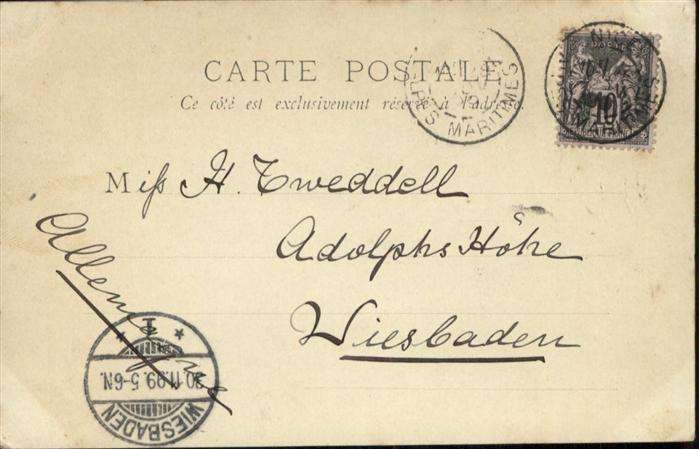 CARTE POSTALE
Ce côté est exclusivement réservé à l'adresse
ALPES MARITIMES
NICE
10
Miss H. Tweddell
Adolphs Höhe
Wiesbaden
Allemagne
1
30.11.99.5-6N.
WIESBADEN